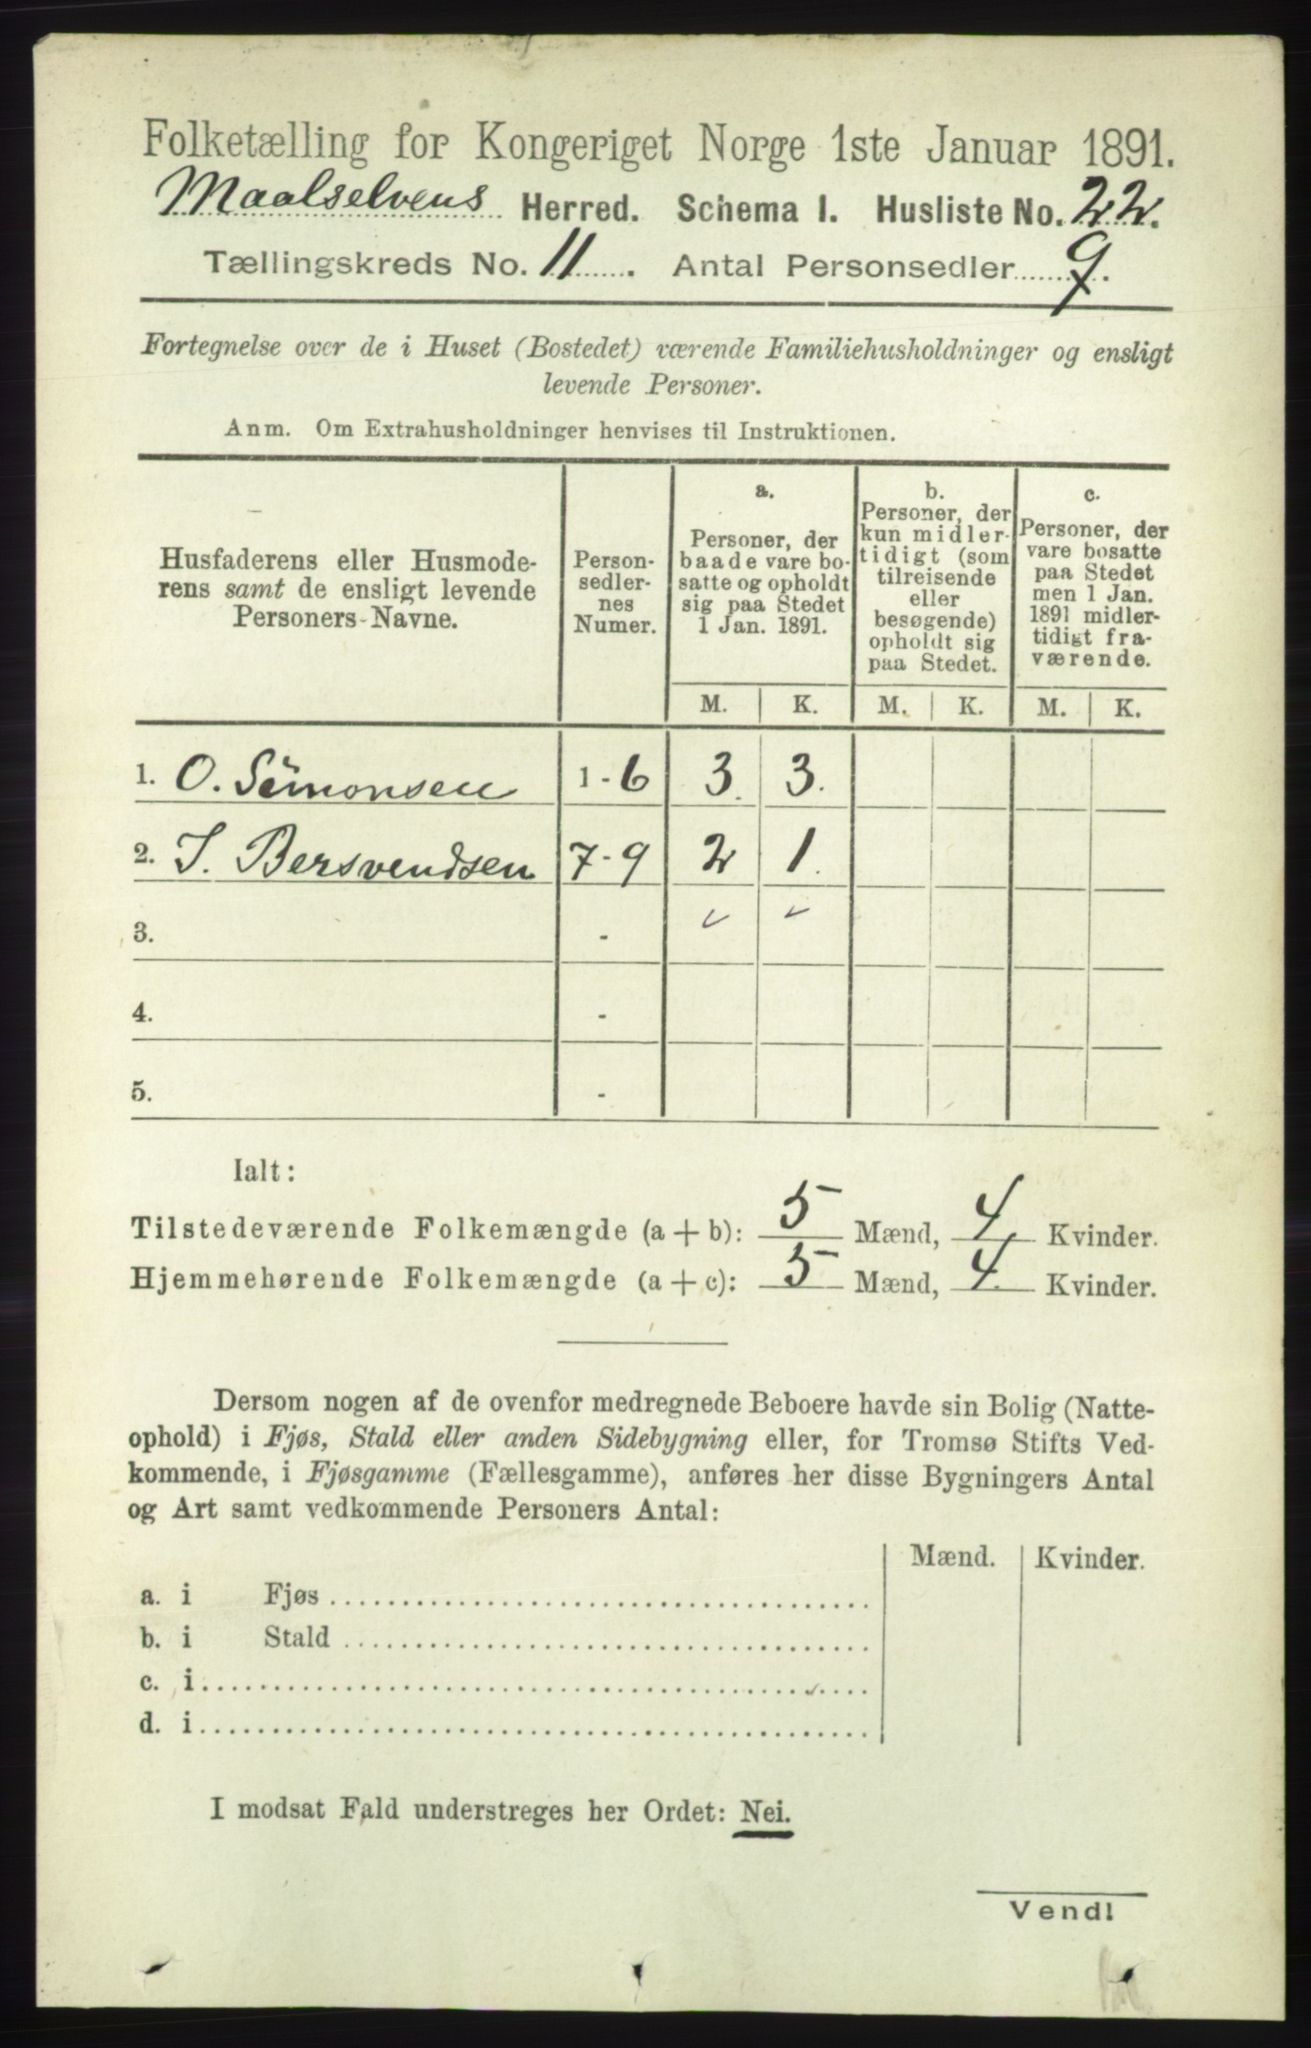 Folketælling for Kongeriget Norge 1ste Januar 1891.
Maalselvens Herred. Schema I. Husliste No. 22.
Tællingskreds No. 11. Antal Personsedler 9.
Fortegnelse over de i Huset (Bostedet) værende Familiehusholdninger og ensligt
levende Personer.
Anm. Om Extrahusholdninger henvises til Instruktionen.
Husfaderens eller Husmode-
rens samt de ensligt levende
Personers Navne.
Person-
sedler-
nes
Numer.
a.
Personer, der
baade vare bo-
satte og opholdt
sig paa Stedet
1 Jan. 1891.
b.
Personer, der
kun midler-
tidigt (som
tilreisende
eller
besøgende)
opholdt sig
paa Stedet.
c.
Personer, der
vare bosatte
paa Stedet
men 1 Jan.
1891 midler-
tidigt fra-
værende.
M. K. M. K. M. K.
1. O. Simonsen 1-6 3. 3.
2. I. Bersvendsen 7-9 2 1.
3. -
4. -
5. -
Ialt:
Tilstedeværende Folkemængde (a + b): 5 Mænd, 4 Kvinder.
Hjemmehørende Folkemængde (a + c): 5 Mænd, 4 Kvinder.
Dersom nogen af de ovenfor medregnede Beboere havde sin Bolig (Natte-
ophold) i Fjøs, Stald eller anden Sidebygning eller, for Tromsø Stifts Ved-
kommende, i Fjøsgamme (Fællesgamme), anføres her disse Bygningers Antal
og Art samt vedkommende Personers Antal:
Mænd. Kvinder.
a. i Fjøs
b. i Stald
c. i
d. i
I modsat Fald understreges her Ordet: Nei.
Vendl